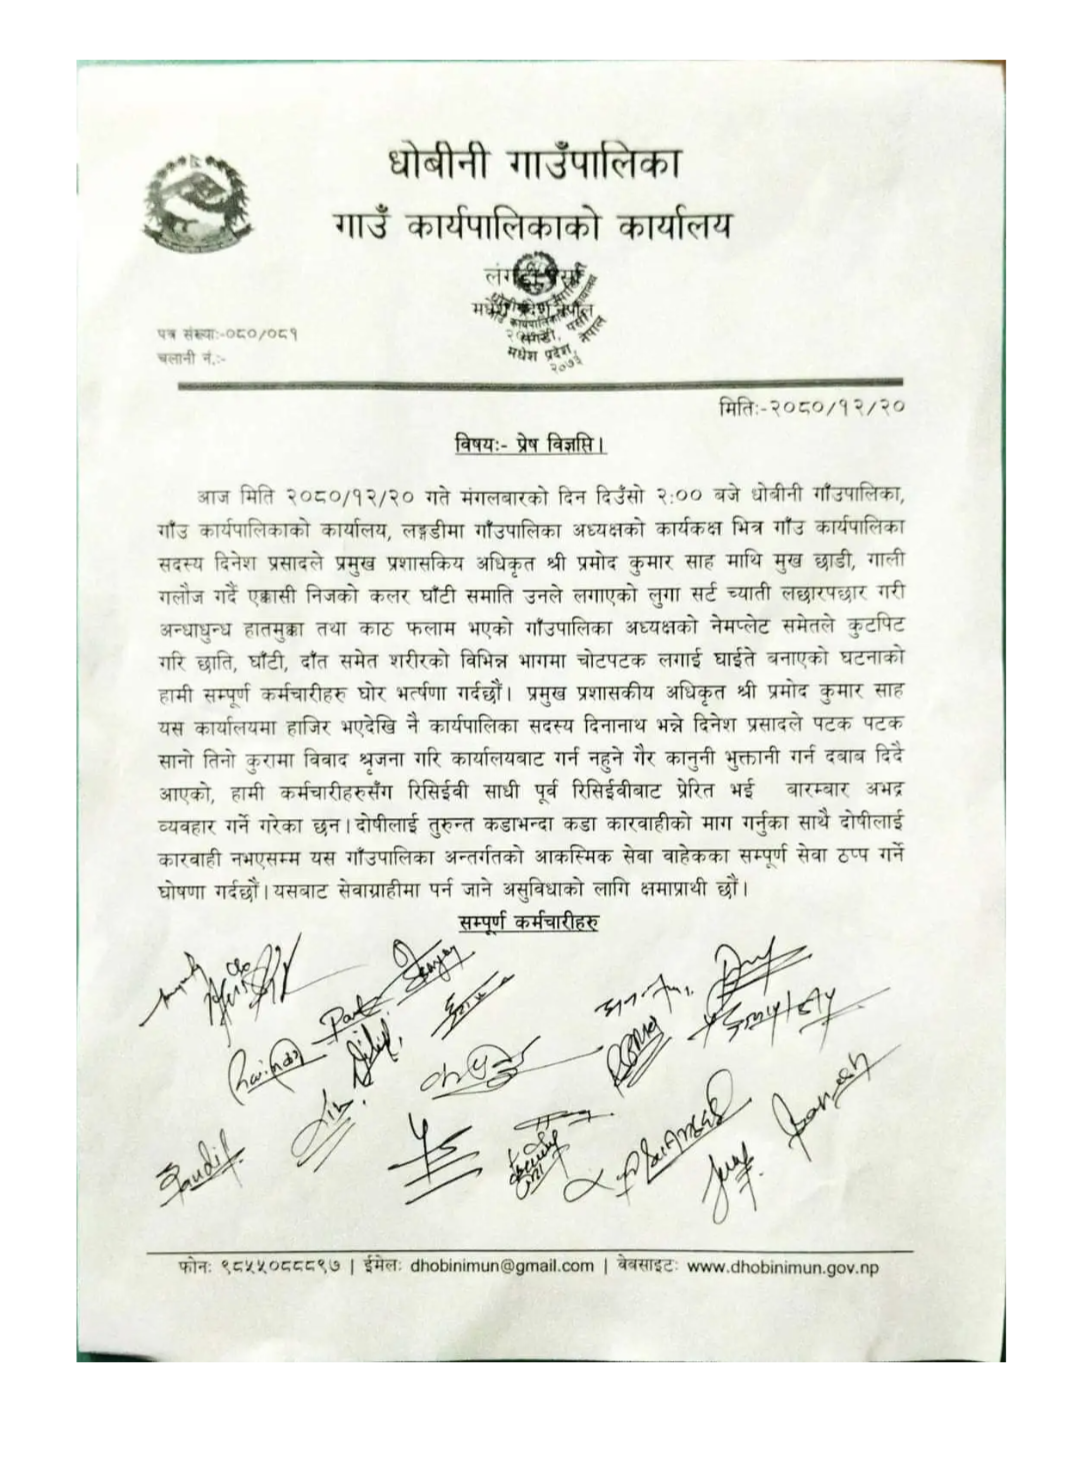 धोबीनी गाउँपालिका
गाउँ कार्यपालिकाको कार्यालय
पत्र संख्याः-०८०/०८१
चलानी नं.ः-
मितिः-२०८०/१२/२०
विषयः- प्रेष विज्ञप्ति।
आज मिति २०८०/१२/२० गते मंगलबारको दिन दिउँसो २:०० बजे धोबीनी गाँउपालिका,
गाँउ कार्यपालिकाको कार्यालय, लङ्गडीमा गाँउपालिका अध्यक्षको कार्यकक्ष भित्र गाँउ कार्यपालिका
सदस्य दिनेश प्रसादले प्रमुख प्रशासकिय अधिकृत श्री प्रमोद कुमार साह माथि मुख छाडी, गाली
गलौज गर्दै एक्कासी निजको कलर घाँटी समाति उनले लगाएको लुगा सर्ट च्याती लछारपछार गरी
अन्धाधुन्ध हातमुक्का तथा काठ फलाम भएको गाँउपालिका अध्यक्षको नेमप्लेट समेतले कुटपिट
गरि छाति, घाँटी, दाँत समेत शरीरको विभिन्न भागमा चोटपटक लगाई घाईते बनाएको घटनाको
हामी सम्पूर्ण कर्मचारीहरु घोर भर्त्षणा गर्दछौं। प्रमुख प्रशासकीय अधिकृत श्री प्रमोद कुमार साह
यस कार्यालयमा हाजिर भएदेखि नै कार्यपालिका सदस्य दिनानाथ भन्ने दिनेश प्रसादले पटक पटक
सानो तिनो कुरामा विवाद श्रृजना गरि कार्यालयबाट गर्न नहुने गैर कानुनी भुक्तानी गर्न दबाब दिदै
आएको, हामी कर्मचारीहरुसँग रिसिईवी साधी पूर्व रिसिईवीबाट प्रेरित भई बारम्बार अभद्र
व्यवहार गर्ने गरेका छन।दोषीलाई तुरुन्त कडाभन्दा कडा कारवाहीको माग गर्नुका साथै दोषीलाई
कारवाही नभएसम्म यस गाँउपालिका अन्तर्गतको आकस्मिक सेवा वाहेकका सम्पूर्ण सेवा ठप्प गर्ने
घोषणा गर्दछौं।यसबाट सेवाग्राहीमा पर्न जाने असुविधाको लागि क्षमाप्रार्थी छौं।
सम्पूर्ण कर्मचारीहरु
फोनः ९८५५०८८८९७ | ईमेलः dhobinimun@gmail.com | वेबसाइटः www.dhobinimun.gov.np